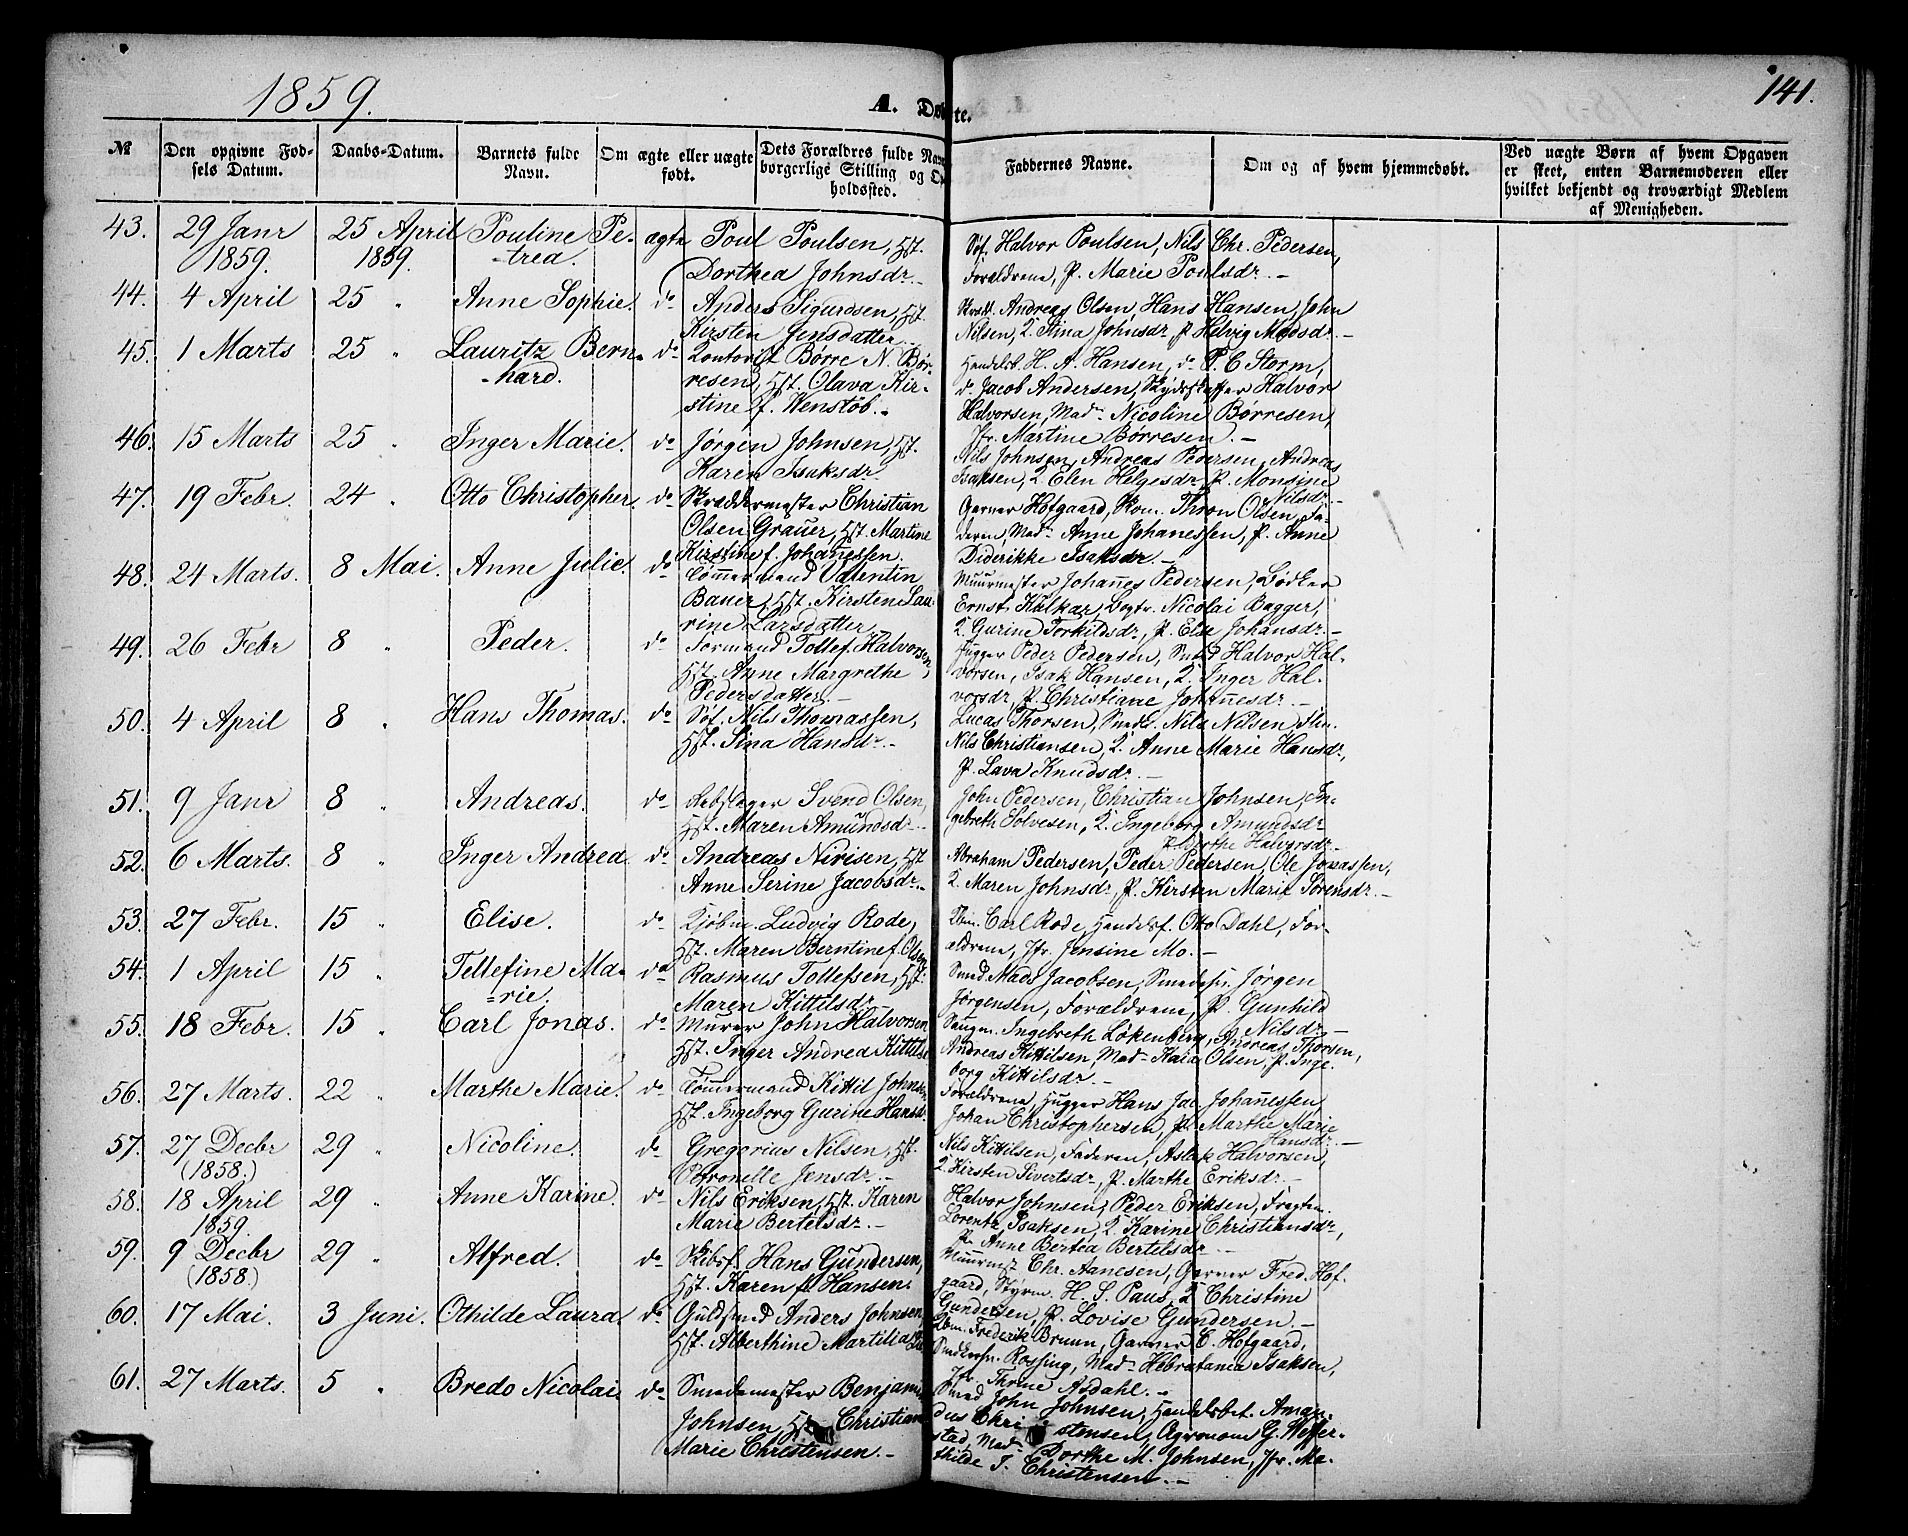 1859.
A. Døbte.
141.
№
Den opgivne Fødsels Datum.
Daabs-Datum.
Barnets fulde Navn.
Om ægte eller uægte født.
Dets Forældres fulde Navn
borgerlige Stilling og Op
holdssted.
Faddernes Navne.
Om og af hvem hjemmedøbt.
Ved uægte Børn af hvem Opgaven
er skeet, enten Barnemoderen eller
hvilket bekjendt og troværdigt Medlem
af Menigheden.
43. 29 Janr 1859. 25 April 1859. Pouline Pe-trea. ægte Poul Poulsen, Hst.
Dorthea Johnsdr.
Søf. Halvor Poulsen, Nils Chr. Pedersen,
Forældrene, P. Marie Poulsdr.
44. 4 April 25 " Anne Sophie. do Anders Sigurdsen, Hst.
Kirsten Jensdatter
Andreas Olsen, Hans Hansen, John
Nilsen, Q. Stina Johnsdr P. Helvig Madsdr.
45. 1 Marts 25 " Lauritz Bern-hard. do Kontorist Børre N. Bør-
resen, Hst. Olava Kir-
stine f. Wenstöb.
Handelsb. H. A. Hansen, do P. C Storm,
do Jacob Andersen, Skydsskaffer Halvor
Halvorsen, Mad. Nicoline Børresen,
Jfr. Martine Børresen.
46. 15 Marts 25 " Inger Marie. do Jørgen Johnsen, Hst.
Karen Isaksdr
Nils Johnsen, Andreas Pedersen, Andreas
Isaksen, Q. Elen Helgesdr, P. Monsine
Nilsdr.
47. 19 Febr. 24 " Otto Christopher. do Skræddermester Christian
Olsen Grauer, Hst. Martine
Kirstine f. Johanessen.
Garver Hofgaard, Thron Olsen, Fa-
deren, Mad. Anne Johanessen, P. Anne
Diderikke Isaksdr.
48. 24 Marts. 8 Mai. Anne Julie. do Tömmermand Valentin
Bauer, Hst. Kirstene Lau-
rine Larsdatter
Muurmester Johanes Pedersen, Bödker
Ernst Kulkar, Nicolai Bagger,
Q. Gurine Torkildsdr, P. Else Johansdr.
49. 26 Febr 8 " Peder. do Formand Tollef Halvorsen,
Hst. Anne Margrethe
Pedersdatter
Hugger Peder Pedersen, Smed Halvor Hal-
vorsen, Isak Hansen, Q. Inger Hal-
vorsdr, P. Christiane Johanesdr.
50. 4 April 8 " Hans Thomas. do Søf. Nils Thomassen,
Hst. Sina Hansdr.
Lucas Thorsen, Nils Nilsen
Nils Christiansen, Q. Anne Marie Hansdr,
P. Lava Knudsdr.
51. 9 Janr 8 " Andreas. do Rebslager Svend Olsen,
Hst. Maren Amundsdr.
John Pedersen, Christian Johnsen, In-
gebreth Solvesen, Q. Ingeborg Amundsdr
P. Dorthe Halvorsdr.
52. 6 Marts. 8 " Inger Andrea. do Andreas Nirisen, Hst
Anne Serine Jacobsdr.
Abraham Pedersen, Peder Pedersen, Ole Jonassen,
Q. Maren Johnsdr, P. Kirsten Marie Sørensdr.
53. 27 Febr. 15 " Elise. do Kjøbm. Ludvig Rode,
Hst. Maren Berntine f. Olsen
Carl Rode, Handelsf. Otto Dahl, For-
ældrene, Jfr. Jensine Mo.
54. 1 April 15 " Tellefine Ma-rie. do Rasmus Tollefsen, Hst.
Maren Kittilsdr
Smed Mads Jacobsen, Jørgen
Jørgensen, Forældrene, P. Gunhild
Nilsdr.
55. 18 Febr. 15 " Carl Jonas. do Murer John Halvorsen
Hst. Inger Andrea Kittils
Ingebreth Løkenberg, Andreas Thorsen,
Andreas Kittilsen, Mad. Kaia Olsen, P. Inge-
borg Kittilsdr.
56. 27 Marts. 22 " Marthe Marie. do Tömmermand Kittil Johns
Hst. Ingeborg Gurine Hansd.
Forældrene, Hugger Hans Jac Johanessen
Johan Christophersen, P. Marthe Marie
Hansdr.
57. 27 Decbr (1858.) 29 " Nicoline. do Gregorius Nilsen, Hst.
Petronelle Jensdr.
Nils Kittilsen, Faderen, Aslak Halvorsen,
Q. Kirsten Sivertsdr, P. Marthe Eriksdr.
58. 18 April 1859. 29 " Anne Karine. do Nils Eriksen, Hst. Karen
Marie Bertelsdr.
Halvor Johnsen, Peder Eriksen,
Lorentz Isaksen, Q. Karine Christiansdr,
P. Anne Bertea Bertelsdr
59. 9 Decbr (1858.) 29 " Alfred. do Skibsf. Hans Gundersen,
Hst. Karen f. Hansen.
Muurmst Chr. Aanesen, Garver Fred. Hof-
gaard, Styrm. H. S. Paus, Q Christine
Gundersen, P. Lovise Gundersen.
60. 17 Mai. 3 Juni. Othilde Laura do Guldsmed Anders Johnsen,
Hst. Alberthine Martilia
Frederik Bruun, Garver C. Hofgaard,
Rossing, Mad. Hebratania Isaksen,
Jfr. Thrine Asdahl.
61. 27 Marts. 5 " Bredo Nicolai do Smedemester Benjami
Johnsen, Hst. Christian
Marie Christensen.
Smed John Johnsen, Handelsbet. Aman-
dus Christensen, Agronom G. Wefler-
stad, Mad. Dorthe M. Johnsen, Jfr. Ma-
thilde T. Christensen.